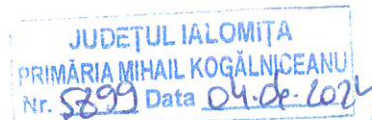 JUDEȚUL IALOMIȚA
PRIMĂRIA MIHAIL KOGĂLNICEANU
Nr. 5899 Data